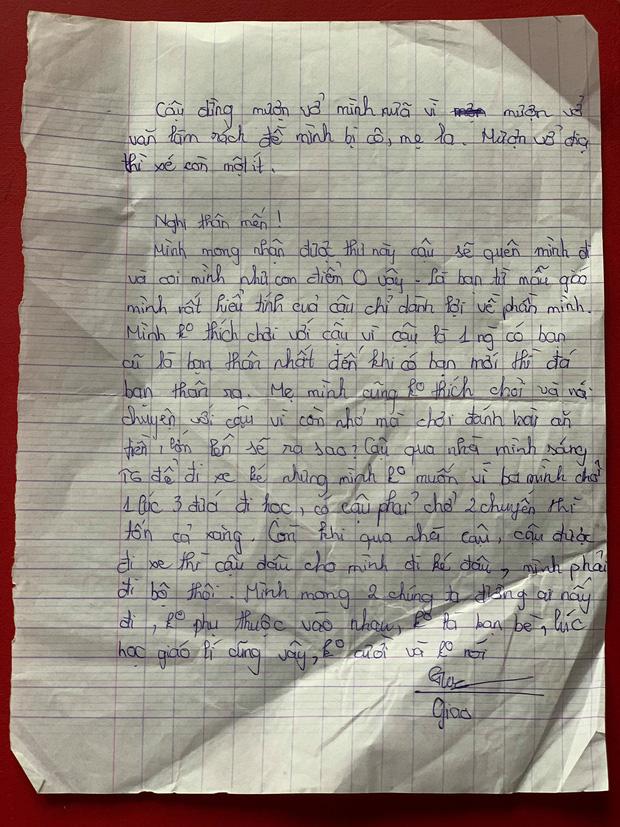 Cậu đừng mượn vở mình nữa vì mượn vở
văn làm rách để mình bị cô, mẹ la. Mượn vở địa
thì xé còn một ít.
Nghi thân mến!
Mình mong nhận được thư này cậu sẽ quên mình đi
và coi mình như con điểm 0 vậy. Là bạn từ mẫu giáo
mình rất hiểu tính cuả cậu chỉ dành lợi về phần mình.
Mình k° thích chơi với cậu vì cậu là 1 ng có bạn
cũ là bạn thân nhất đến khi có bạn mới thì đá
bạn thân ra. Mẹ mình cũng k° thích chơi và nói
chuyện với cậu vì còn nhỏ mà chơi đánh bài ăn
tiền, lớn lên sẽ ra sao? Cậu qua nhà mình sáng
để đi xe ké nhưng mình k° muốn vì ba mình chở
1 lúc 3 đứa đi học, có cậu phải chở 2 chuyến thì
tốn cả xăng. Còn khi qua nhà cậu, cậu được
đi xe thì cậu đâu cho mình đi ké đâu, mình phải
đi bộ thôi. Mình mong 2 chúng ta đường ai nấy
đi, k° phụ thuộc vào nhau, k° là bạn bè, lúc
học giáo lí cũng vậy, k° cười và k° nói
Giao